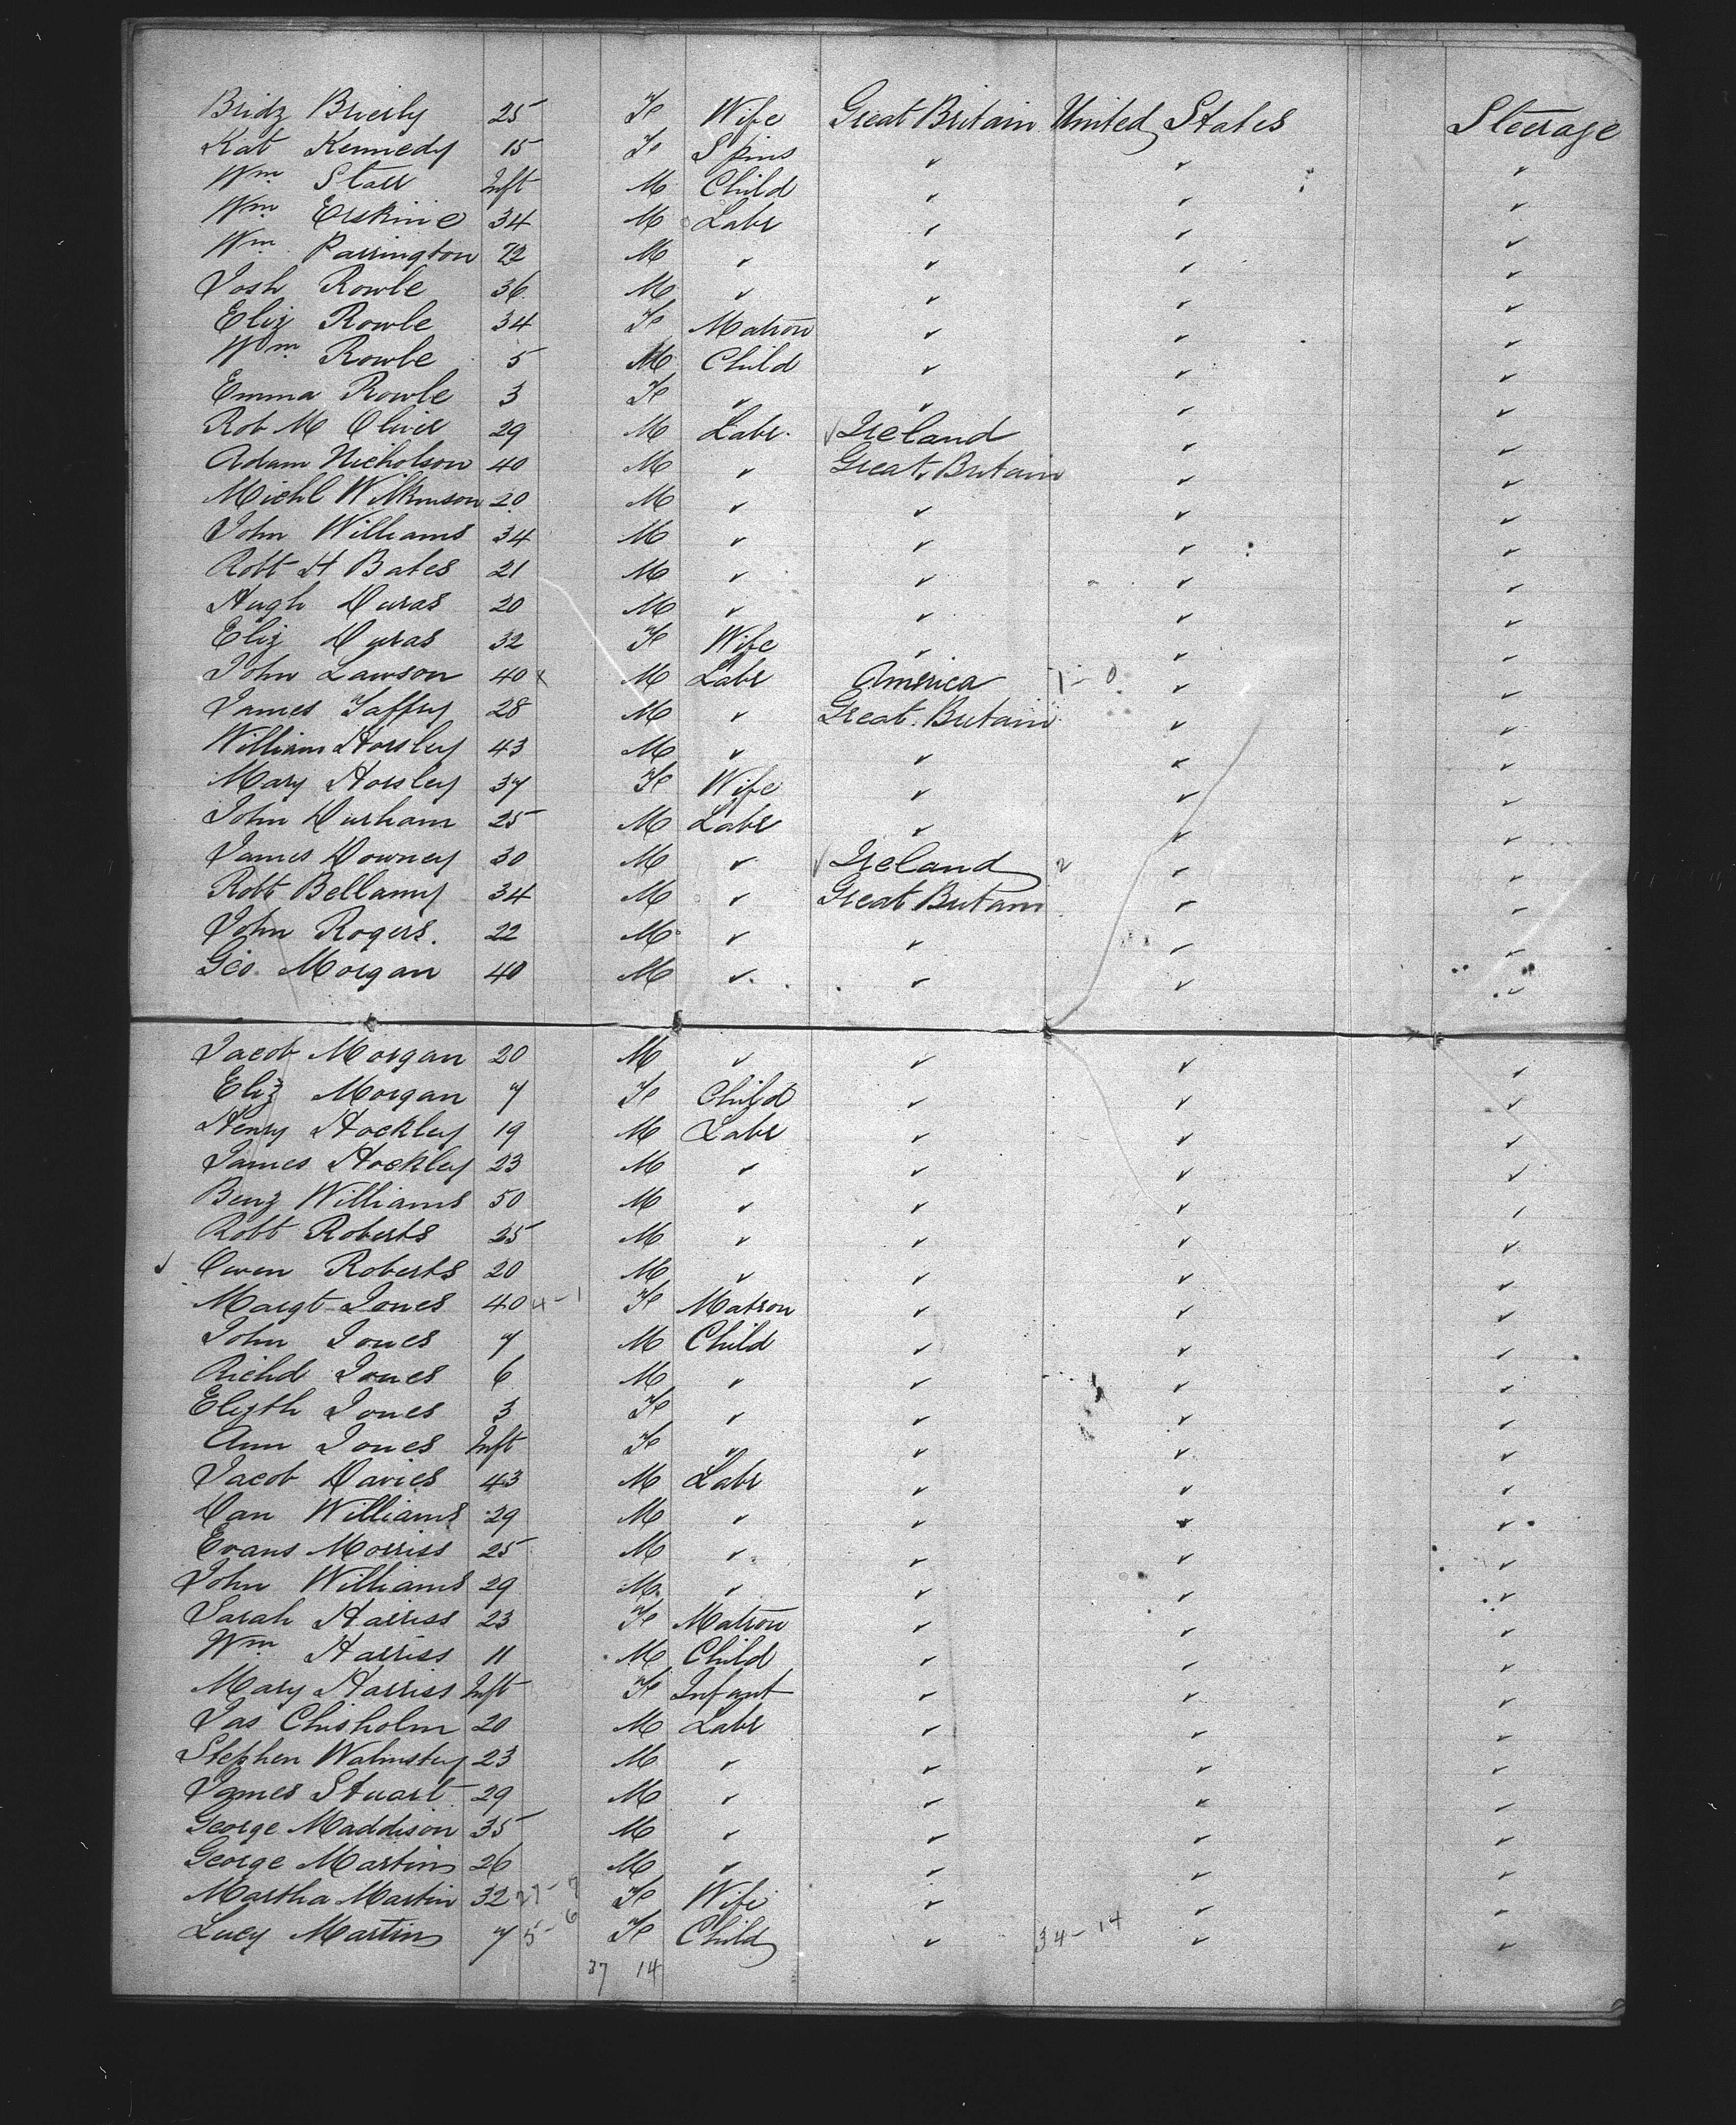 Bridg Brierly 25 Fe Wife Great Britain United States Steerage
Kat Kennedy 15 Fe Spins ✓ ✓ ✓
Wm Starr Inft M Child ✓ ✓ ✓
Wm Erskine 34 M Labr ✓ ✓ ✓
Wm Parrington 22 M ✓ ✓ ✓ ✓
Josh Rowle 36 M ✓ ✓ ✓ ✓
Eliz Rowle 34 Fe Matron ✓ ✓ ✓
Wm Rowle 5 M Child ✓ ✓ ✓
Emma Rowle 3 Fe ✓ ✓ ✓ ✓
Rob M Oliver 29 M Labr. ✓ Ireland ✓ ✓
Adam Nicholson 40 M ✓ Great Britain ✓ ✓
Michl Wilkinson 20 M ✓ ✓ ✓ ✓
John Williams 34 M ✓ ✓ ✓ ✓
Robt H Bates 21 M ✓ ✓ ✓ ✓
Hugh Duras 20 M ✓ ✓ ✓ ✓
Eliz Duras 32 Fe Wife ✓ ✓ ✓
John Lawson 40 x M Labr America 1-0 ✓ ✓
James Gaffny 28 M ✓ Great Britain ✓ ✓
William Horsley 43 M ✓ ✓ ✓ ✓
Mary Horsley 37 Fe Wife ✓ ✓ ✓
John Durham 25 M Labr ✓ ✓ ✓
James Downey 30 M ✓ ✓ Ireland 2 ✓ ✓
Robt Bellamy 34 M ✓ Great Britain ✓ ✓
John Rogers. 22 M ✓ ✓ ✓ ✓
Geo. Morgan 40 M ✓ ✓ ✓ ✓
Jacob Morgan 20 M ✓ ✓ ✓ ✓
Eliz Morgan 7 Fe Child ✓ ✓ ✓
Henry Hockley 19 M Labr ✓ ✓ ✓
James Hockley 23 M ✓ ✓ ✓ ✓
Benj Williams 50 M ✓ ✓ ✓ ✓
Robt Roberts 25 M ✓ ✓ ✓ ✓
✓ Owen Roberts 20 M ✓ ✓ ✓ ✓
Margt Jones 40 4-1 Fe Matron ✓ ✓ ✓
John Jones 7 M Child ✓ ✓ ✓
Richd Jones 6 M ✓ ✓ ✓ ✓
Elizth Jones 3 Fe ✓ ✓ ✓ ✓
Ann Jones Inft Fe ✓ ✓ ✓ ✓
Jacob Davies 43 M Labr ✓ ✓ ✓
Dan Williams 29 M ✓ ✓ ✓ ✓
Evans Morriss 25 M ✓ ✓ ✓ ✓
John Williams 29 M ✓ ✓ ✓ ✓
Sarah Harriss 23 Fe Matron ✓ ✓ ✓
Wm Harriss 11 M Child ✓ ✓ ✓
Mary Harriss Inft Fe Infant ✓ ✓ ✓
Jas Chisholm 20 M Labr ✓ ✓ ✓
Stephen Walmsley 23 M ✓ ✓ ✓ ✓
James Stuart 29 M ✓ ✓ ✓ ✓
George Maddison 35 M ✓ ✓ ✓ ✓
George Martin 26 M ✓ ✓ ✓ ✓
Martha Martin 32 Fe Wife ✓ ✓ ✓
Lucy Martin 7 5-6 Fe Child ✓ 34-14 ✓ ✓
37 14